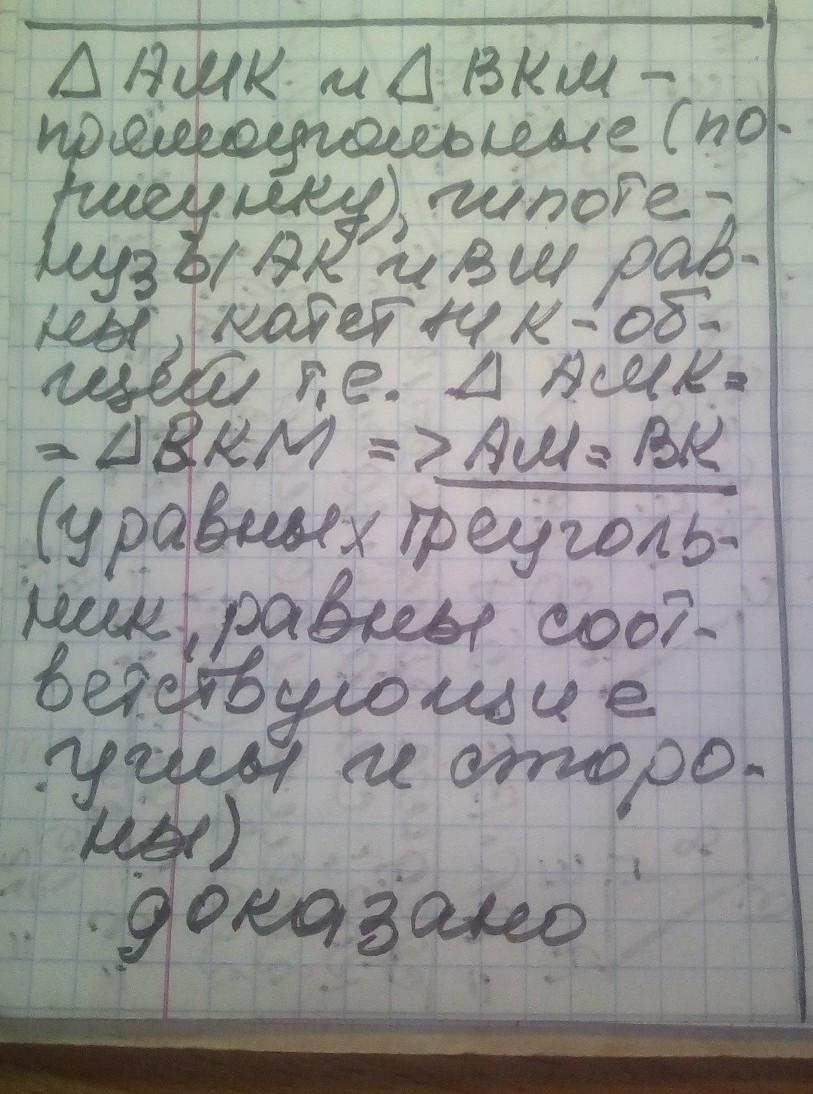 Δ АМК и Δ ВКМ -
прямоугольные (по
рисунку), гипоте-
нузы АК и ВМ рав-
ны, катет МК - об-
щий т.е. Δ АМК =
= Δ ВКМ => АМ = ВК
(у равных треуголь-
ник, равны соот-
ветствующие
углы и сторо-
ны)
доказано